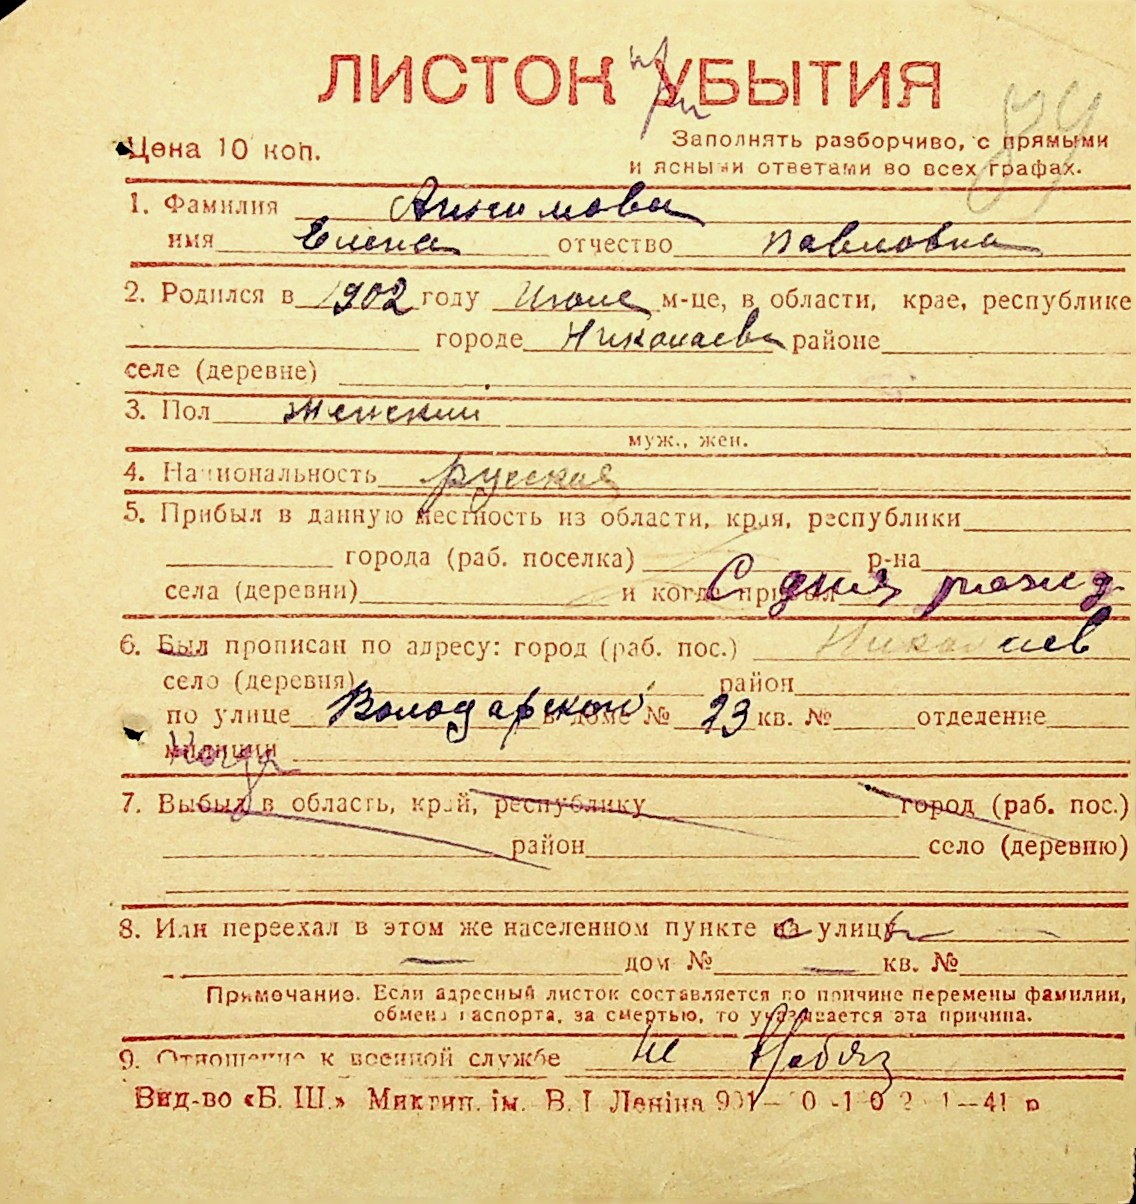 ЛИСТОК УБЫТИЯ
Цена 10 коп.
Заполнять разборчиво, с прямыми
и ясными ответами во всех графах.
1. Фамилия Анисимова
имя Елена отчество Павловна
2. Родился в 1902 году Июле м-це, в области, крае, республике
городе Николаеве районе
селе (деревне)
3. Пол женский
муж., жен.
4. Национальность русская
5. Прибыл в данную местность из области, края, республики
города (раб. поселка) р-на
села (деревни) и когда прибыл С дня рожд
6. Был прописан по адресу: город (раб. пос.) Николаев
село (деревня) район
по улице Володарской в доме № 23 кв. № отделение
милиции Когда
7. Выбыл в область, край, республику город (раб. пос.)
район село (деревню)
8. Или переехал в этом же населенном пункте с улицы
дом № кв. №
Примечание. Если адресный листок составляется по причине перемены фамилии,
обмена паспорта, за смертью, то указывается эта причина.
9. Отношение к военной службе Не
Вид-во «Б. Ш.» Миктип. ім. В. І Леніна